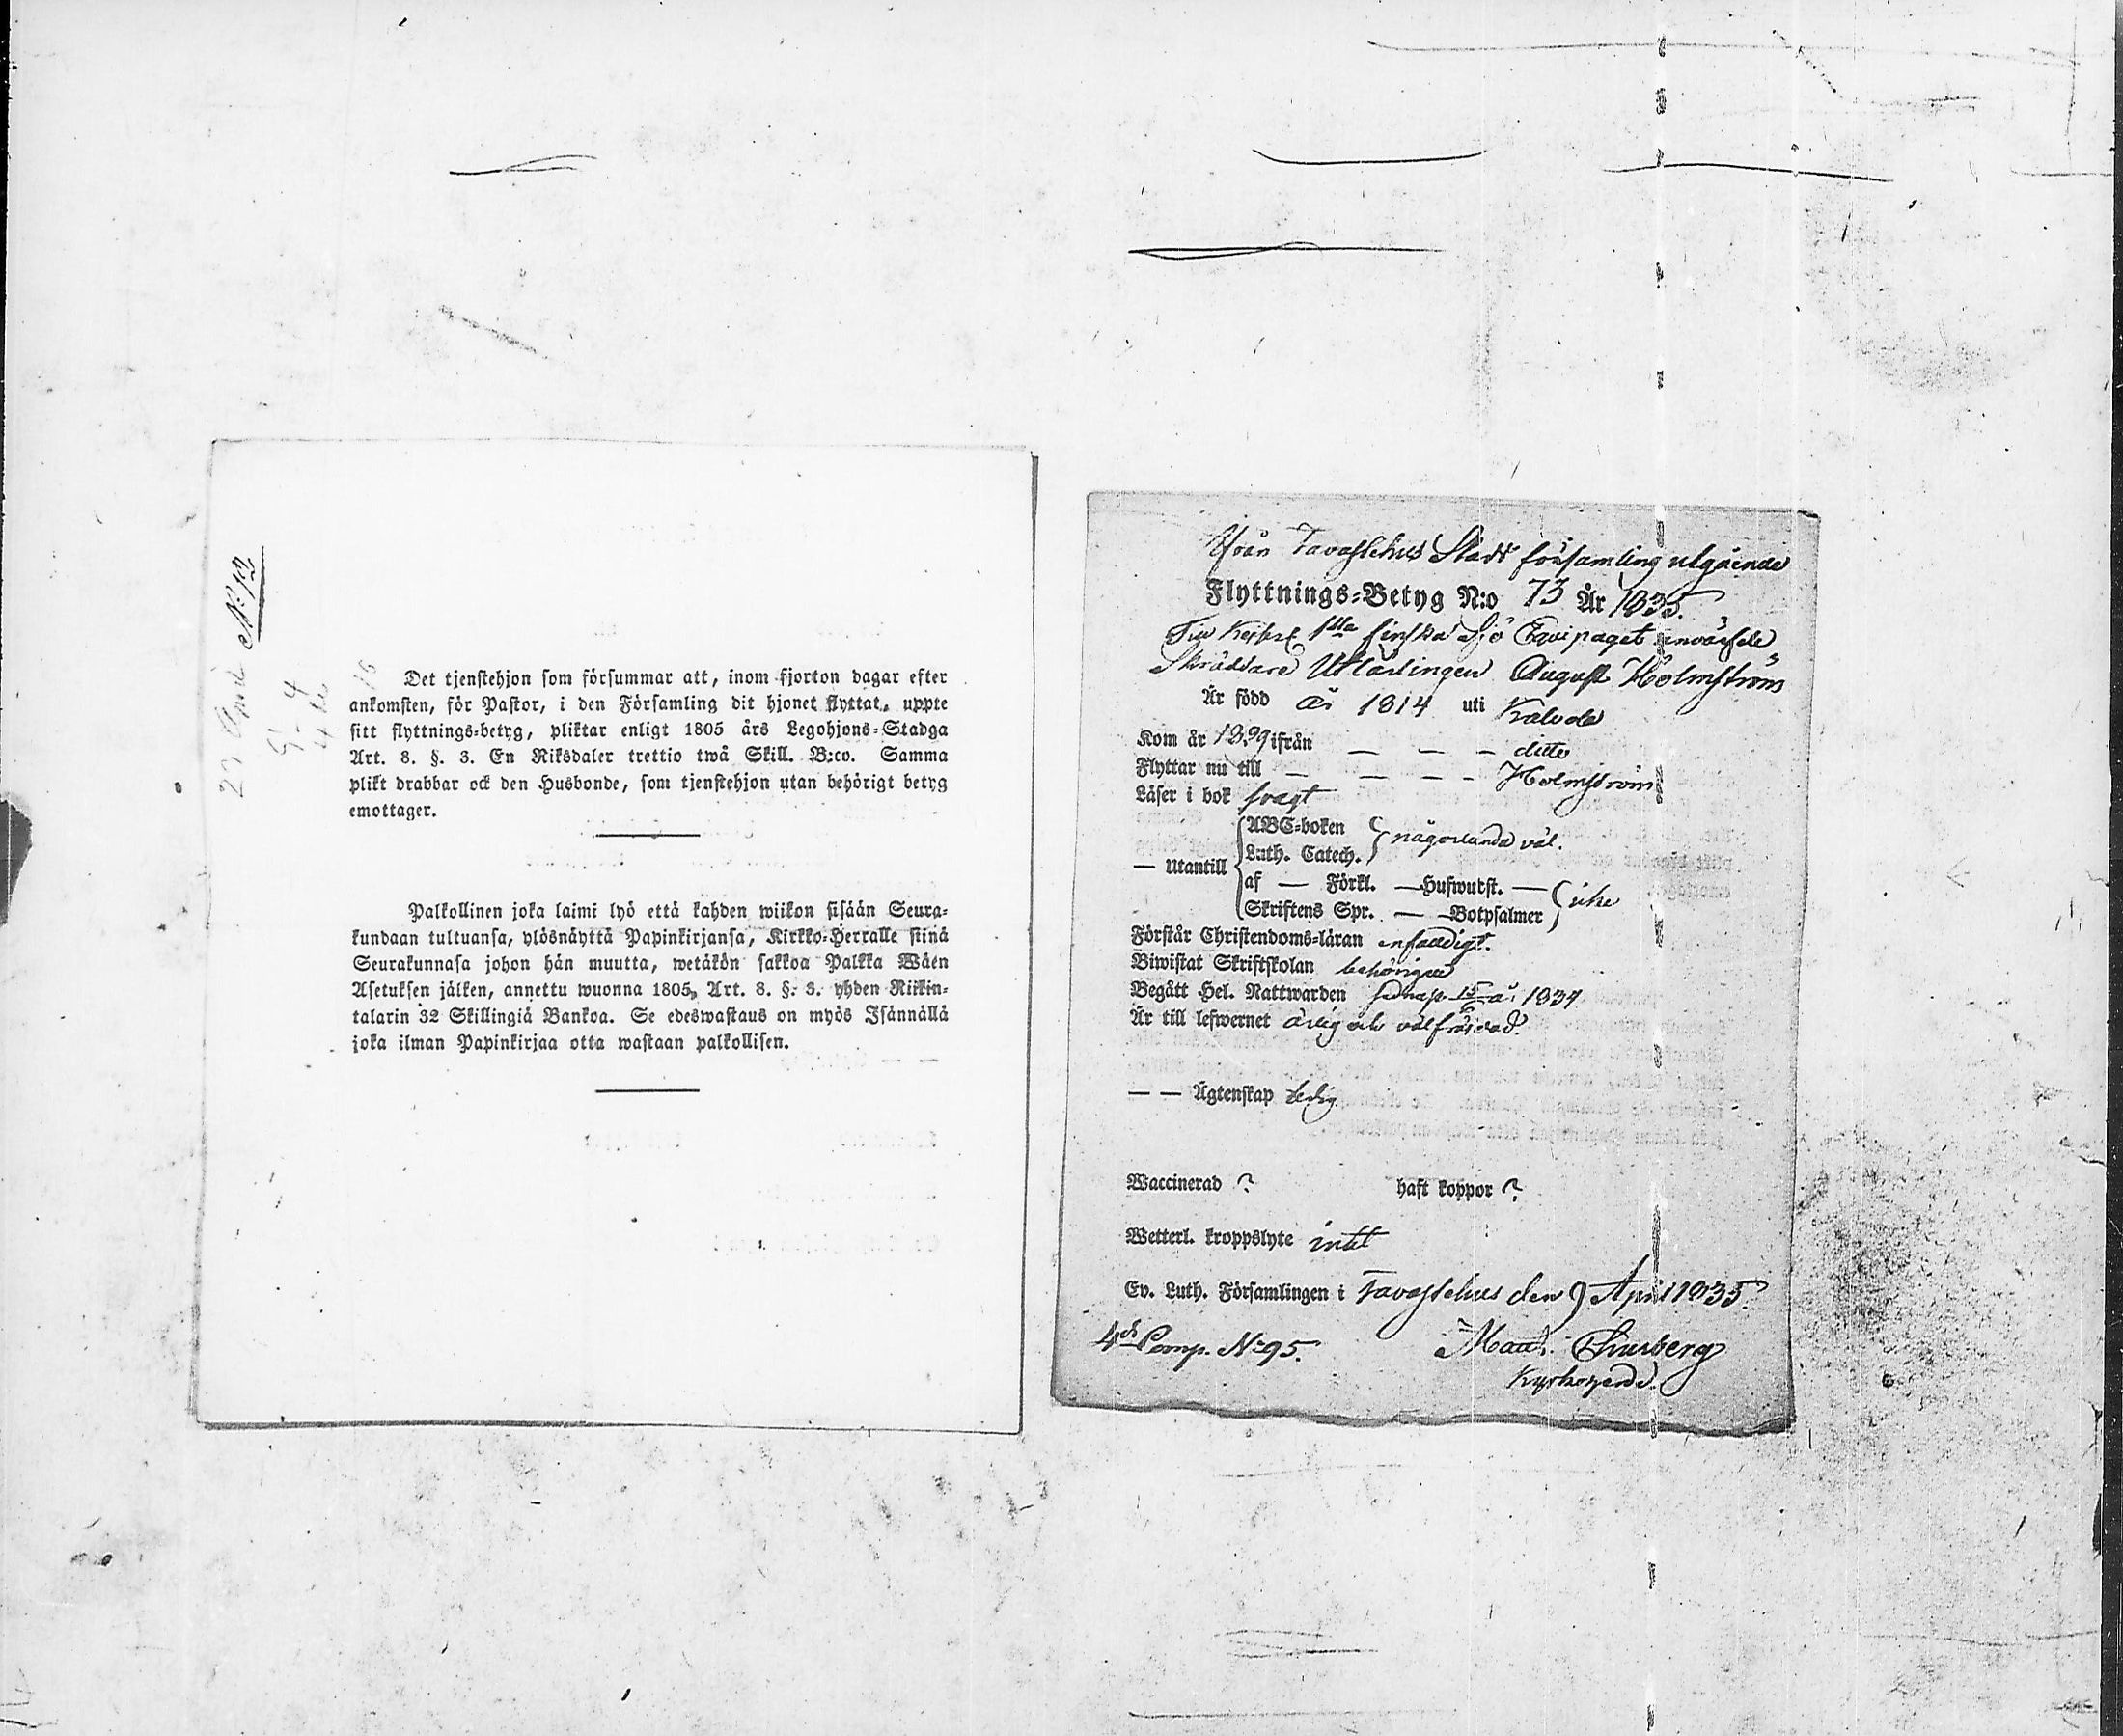 N:o 73
Det tjenstehjon som försummar att, inom fjorton dagar efter
ankomsten, för Pastor, i den Församling dit hjonet flyttat, uppte
sitt flyttnings-betyg, pliktar enligt 1805 års Legohjons-Stadga
Art. 8. §. 3. En Riksdaler trettio twå Skill. B:co. Samma
plikt drabbar ock den Husbonde, som tjenstehjon utan behörigt betyg
emottager.
Palkollinen joka laimi lyö että kahden wiikon sisään Seura-
kundaan tultuansa, ylösnäyttä Papinkirjansa, Kirkko-Herralle siinä
Seurakunnasa johon hän muutta, wetäkön sakkoa Palkka Wäen
Asetuksen jälken, annettu wuonna 1805, Art. 8. §. 3. yhden Riikin-
talarin 32 Skillingiä Bankoa. Se edeswastaus on myös Isännällä
joka ilman Papinkirjaa otta wastaan palkollisen.
Från Tavastehus Stads församling utgående
Flyttnings-Betyg N:o 73 År 1835.
Till Keiserl 1sta finska Sjö Equipaget
Skräddare Utlärlingen August Holmström
Är född år 1814 uti Kalvola
Kom år ifrån — — — ditto
Flyttar nu till — — — Holmström
Läser i bok svagt
— Utantill
ABC-boken
Luth. Catech.
någorlunda väl.
af — Förkl. — Hufwudst. —
Skriftens Spr. — — Botpsalmer
icke
Förstår Christendoms-läran enfaldigt.
Biwistat Skriftskolan behörigen
Begått Hel. Nattwarden 1834
Är till lefwernet ärlig och välfräjdad.
— — Ägtenskap ledig
Waccinerad ? haft koppor ?
Wetterl. kroppslyte intet
Ev. Luth. Församlingen i Tavastehus den 9 April 1835.
4de Comp. No 95.
Kyrkoherde.